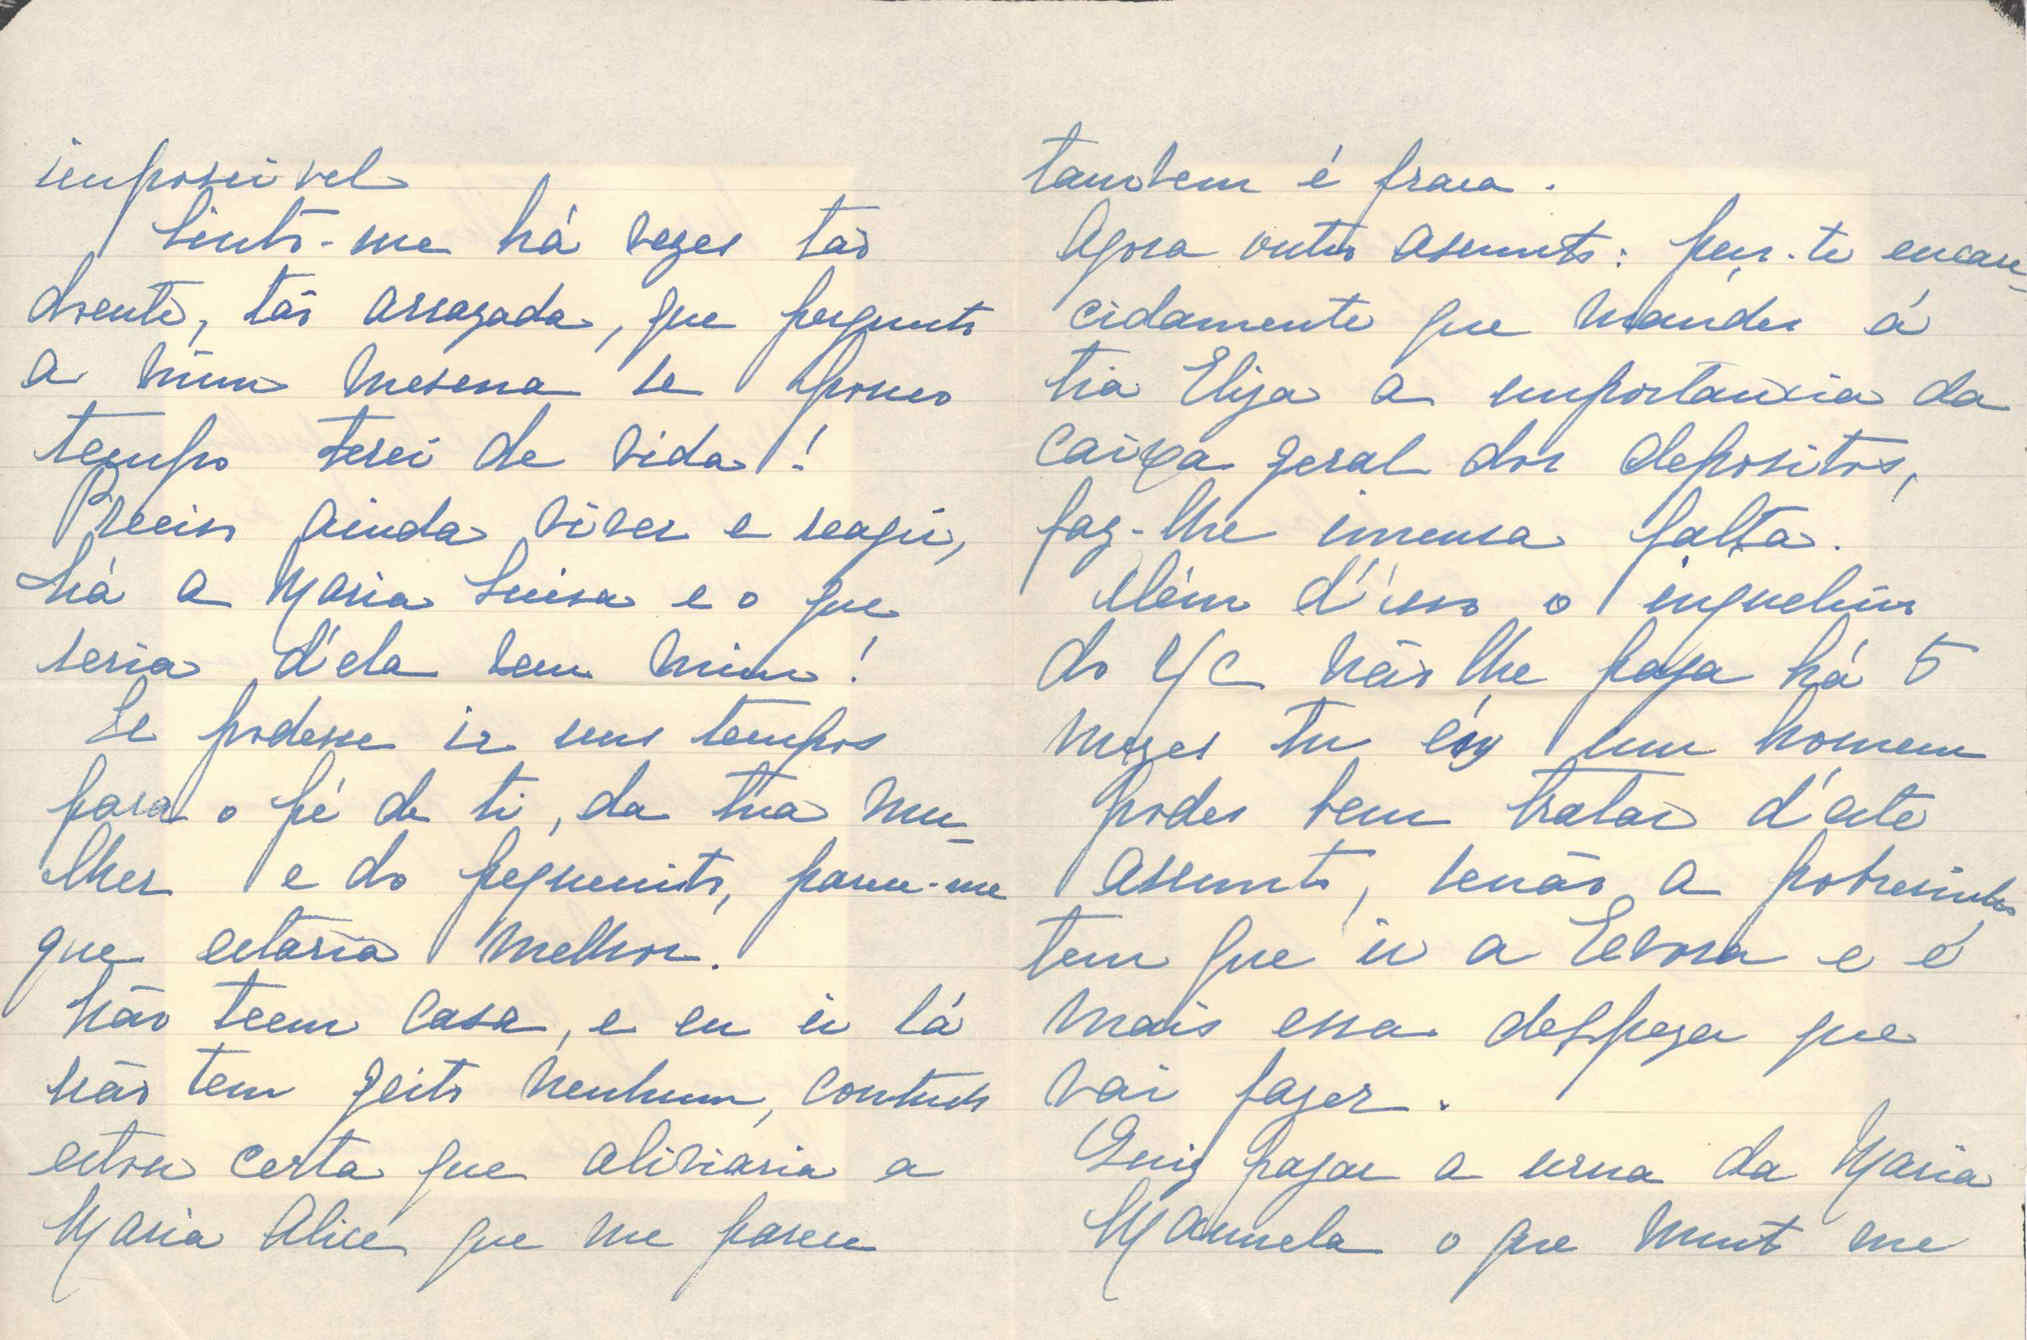 impossivel
Sinto-me há vezes tão
doente, tão arrazada, que pergunto
a mim mesma se pouco
tempo terei de vida!
Preciso ainda viver e reagir,
há a Maria Luisa e o que
seria d'ela sem mim!
Se podesse ir uns tempos
para o pé de ti, da túa mu-
lher e do pequenito, parece-me
que estaria melhor.
Não teem casa, e eu ir lá
não tem geito nenhum, contudo
estou certa que aliviaria a
Maria Alice que me parece
tambem é fraca.
Agora outro assunto: peço-te encare-
cidamente que mandes á
tia Eliza a importancia da
caixa geral dos depositos,
faz-lhe imensa falta.
Além d'isso o inquelino
do Y/C não lhe paga há 5
mezes tu és um homem
podes bem tratar d'este
assunto, senão a pobresinha
tem que ir a Evora e é
mais essa despeza que
vai fazer.
Quiz pagar a urna da Maria
Manuela o que muito me